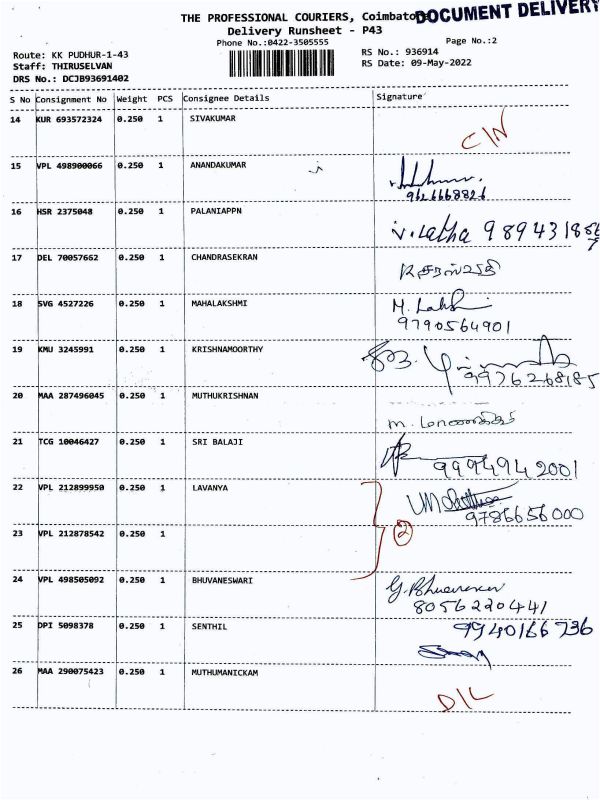 THE PROFESSIONAL COURIERS, Coimbatore
DOCUMENT DELIVERY
Delivery Runsheet - P43
Phone No.:0422-3505555
Page No.:2
Route: KK PUDHUR-1-43
RS No.: 936914
Staff: THIRUSELVAN
RS Date: 09-May-2022
DRS No.: DCJB93691402
S No Consignment No Weight PCS Consignee Details Signature
14 KUR 693572324 0.250 1 SIVAKUMAR
C/N
15 VPL 498900066 0.250 1 ANANDAKUMAR
9626668826
16 HSR 2375048 0.250 1 PALANIAPPN
V.Latha 9894318867
17 DEL 70057662 0.250 1 CHANDRASEKRAN
R சரஸ்வதி
18 SVG 4527226 0.250 1 MAHALAKSHMI
M. Lakshi
9790564901
19 KMU 3245991 0.250 1 KRISHNAMOORTHY
9976268185
20 MAA 287496045 0.250 1 MUTHUKRISHNAN
21 TCG 10046427 0.250 1 SRI BALAJI
9994942001
22 VPL 212899950 0.250 1 LAVANYA
9786656000
23 VPL 212878542 0.250 1
2
24 VPL 498505092 0.250 1 BHUVANESWARI
G.Bhuvaneswari
8056220441
25 DPI 5098378 0.250 1 SENTHIL
9940166736
26 MAA 290075423 0.250 1 MUTHUMANICKAM
D/L